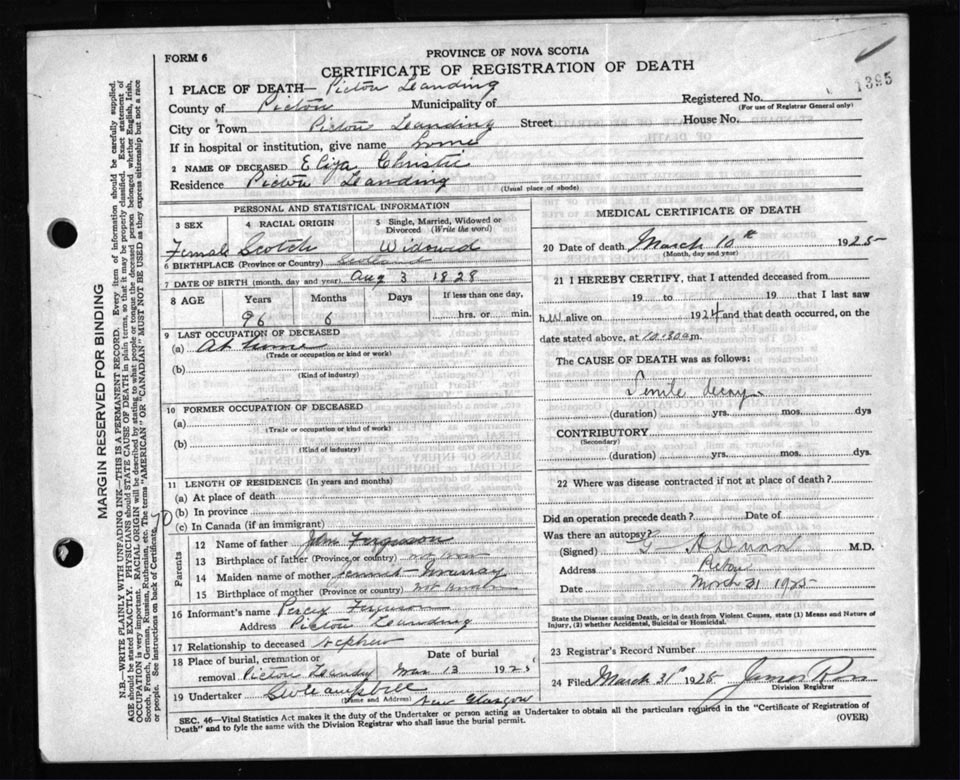 FORM 6
PROVINCE OF NOVA SCOTIA
CERTIFICATE OF REGISTRATION OF DEATH
1395
1 PLACE OF DEATH— Pictou Leanding
Registered No.
(For use of Registrar General only)
County of Pictou Municipality of
City or Town Pictou Leanding Street House No.
If in hospital or institution, give name home
2 NAME OF DECEASED Eliza Christie
Residence Pictou Leanding
(Usual place of abode)
PERSONAL AND STATISTICAL INFORMATION
3 SEX 4 RACIAL ORIGIN 5 Single, Married, Widowed or Divorced (Write the word)
Female Scotch Widowed
6 BIRTHPLACE (Province or Country) Scotland
7 DATE OF BIRTH (month, day and year) Aug 3 1828
8 AGE Years Months Days If less than one day,
96 6 hrs. or min.
9 LAST OCCUPATION OF DECEASED
(a) At home
(Trade or occupation or kind or work)
(b)
(Kind of industry)
10 FORMER OCCUPATION OF DECEASED
(a)
(Trade or occupation or kind of work)
(b)
(Kind of industry)
11 LENGTH OF RESIDENCE (In years and months)
(a) At place of death
(b) In province
(c) In Canada (if an immigrant)
70
Parents
12 Name of father John Ferguson
13 Birthplace of father (Province, or country)
14 Maiden name of mother Murray
15 Birthplace of mother (Province or country) not known
16 Informant's name Percy Ferguson
Address Pictou Leanding
17 Relationship to deceased Nephew
18 Place of burial, cremation or removal Pictou Date of burial Mar 13 1925
19 Undertaker Campbell New Glasgow
(Name and Address)
MEDICAL CERTIFICATE OF DEATH
20 Date of death March 10th 1925
(Month, day and year)
21 I HEREBY CERTIFY, that I attended deceased from
19 to 19 that I last saw
her alive on 1924 and that death occurred, on the
date stated above, at 10.30 a m.
The CAUSE OF DEATH was as follows:
Senile decay
(duration) yrs. mos. dys
CONTRIBUTORY
(Secondary)
(duration) yrs. mos. dys.
22 Where was disease contracted if not at place of death?
Did an operation precede death? Date of
Was there an autopsy?
(Signed) G A Dunn M.D.
Address Pictou
Date March 31 1925
State the Disease causing Death, or in death from Violent Causes, state (1) Means and Nature of
Injury, (2) whether Accidental, Suicidal or Homicidal.
23 Registrar's Record Number
24 Filed March 31 1925 James Ross
Division Registrar
SEC. 46—Vital Statistics Act makes it the duty of the Undertaker or person acting as Undertaker to obtain all the particulars required in the "Certificate of Registration of
Death" and to fyle the same with the Division Registrar who shall issue the burial permit.
(OVER)
MARGIN RESERVED FOR BINDING
N.B.—WRITE PLAINLY WITH UNFADING INK—THIS IS A PERMANENT RECORD. Every item of information should be carefully supplied.
AGE should be stated EXACTLY. PHYSICIANS should STATE CAUSE OF DEATH in plain terms, so that it may be properly classified. Exact statement of
OCCUPATION is very important. RACIAL ORIGIN will be described by stating to what people or tongue the deceased person belonged whether English, Irish,
Scotch, French, German, Russian, Ruthenian, etc. The terms "AMERICAN" OR "CANADIAN" MUST NOT BE USED as they express citizenship but not a race
or people. See instructions on back of Certificate.